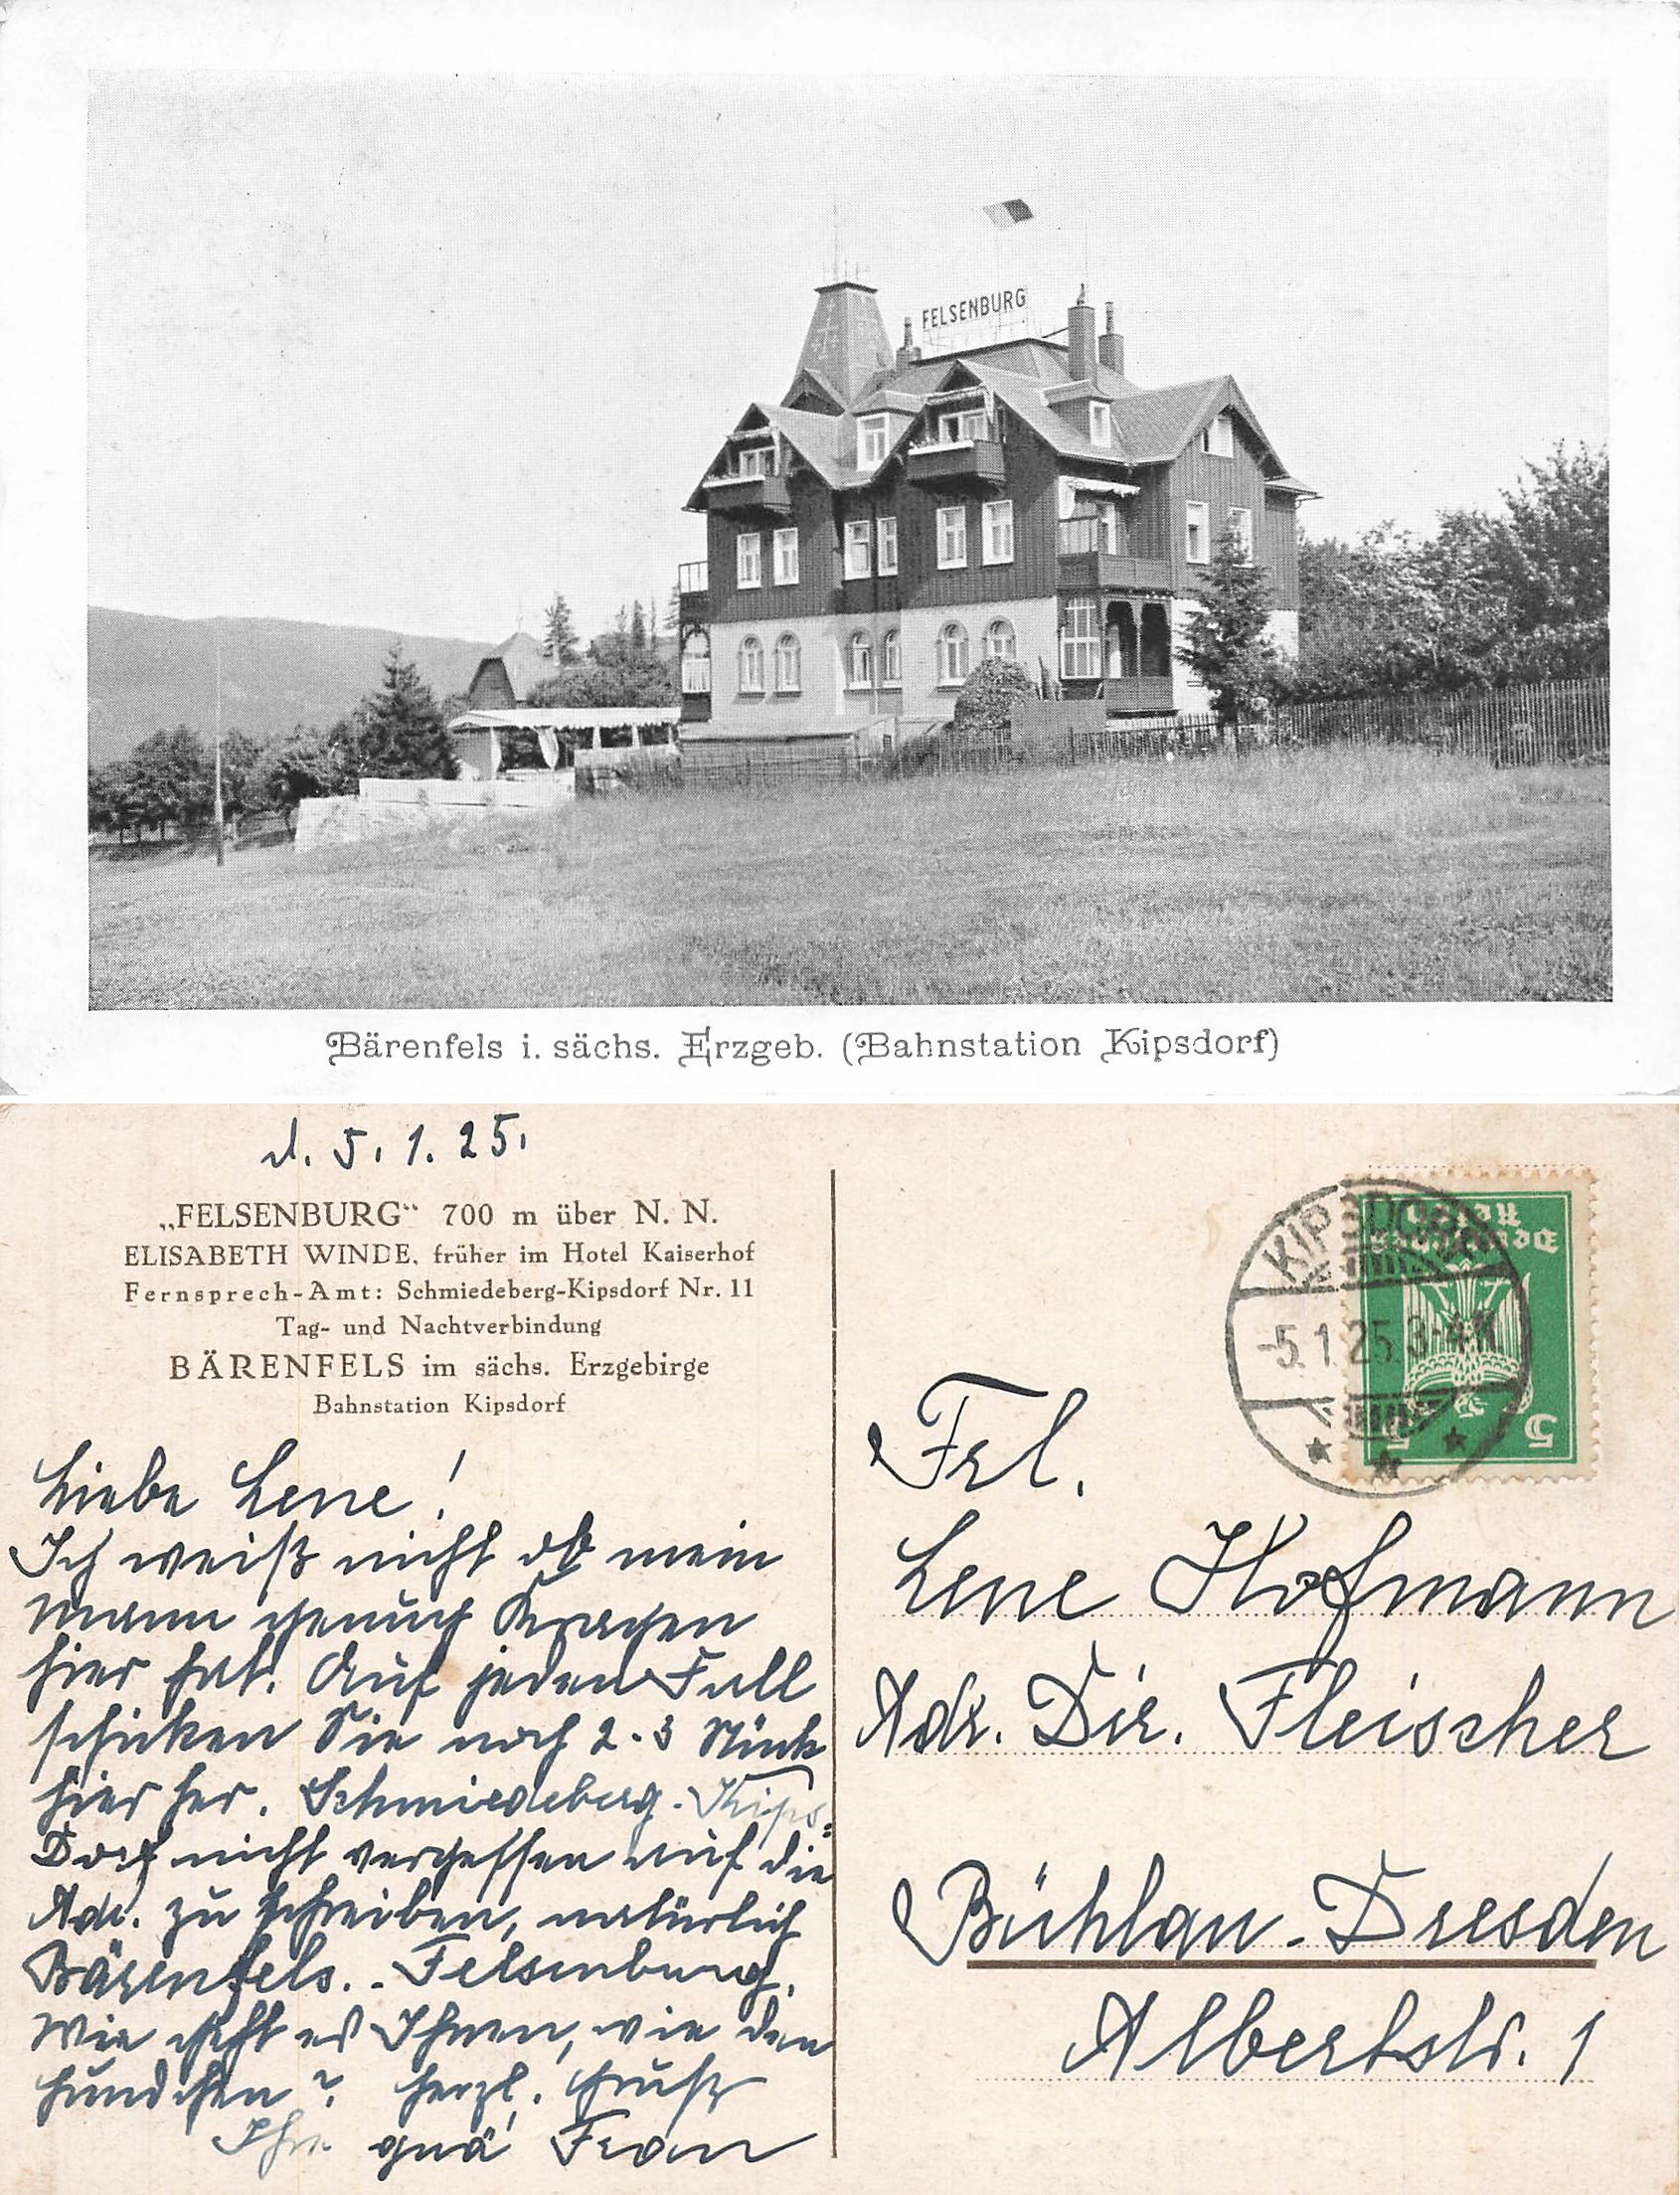 FELSENBURG
Bärenfels i. sächs. Erzgeb. (Bahnstation Kipsdorf)
d. 5. 1. 25.
„FELSENBURG“ 700 m über N. N.
ELISABETH WINDE, früher im Hotel Kaiserhof
Fernsprech-Amt: Schmiedeberg-Kipsdorf Nr. 11
Tag- und Nachtverbindung
BÄRENFELS im sächs. Erzgebirge
Bahnstation Kipsdorf
Liebe Lene!
Ich weiß nicht ob mein
Mann genug Kragen
hier hat. Auf jeden Fall
schicken Sie noch 2-3 Stück
hier her. Schmiedeberg-Kips=
Dorf nicht vergessen auf die
Adr. zu schreiben, natürlich
Bärenfels.-Felsenburg.
Wie geht es Ihnen, wie den
Hundchen? Herzl. Gruß
Ihre gnä' Frau
KIPSDORF
-5.1.25.3-4N
Deutsches
Reich
5 5
Frl.
Lene Hofmann
Adr. Dir. Fleischer
Bühlau-Dresden
Albertstr. 1